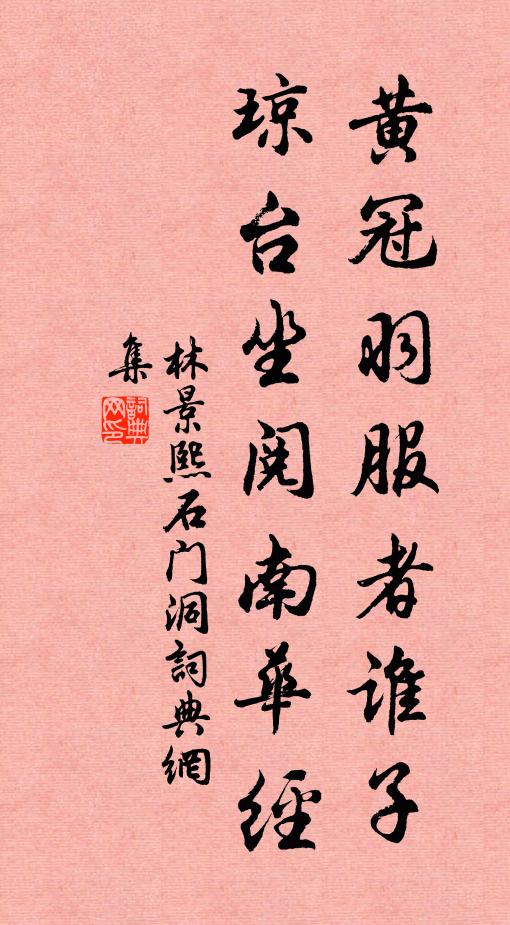 黄冠羽服者谁子
琼台坐阅南華经
林景熙石门洞詞典網
集
詞典网印